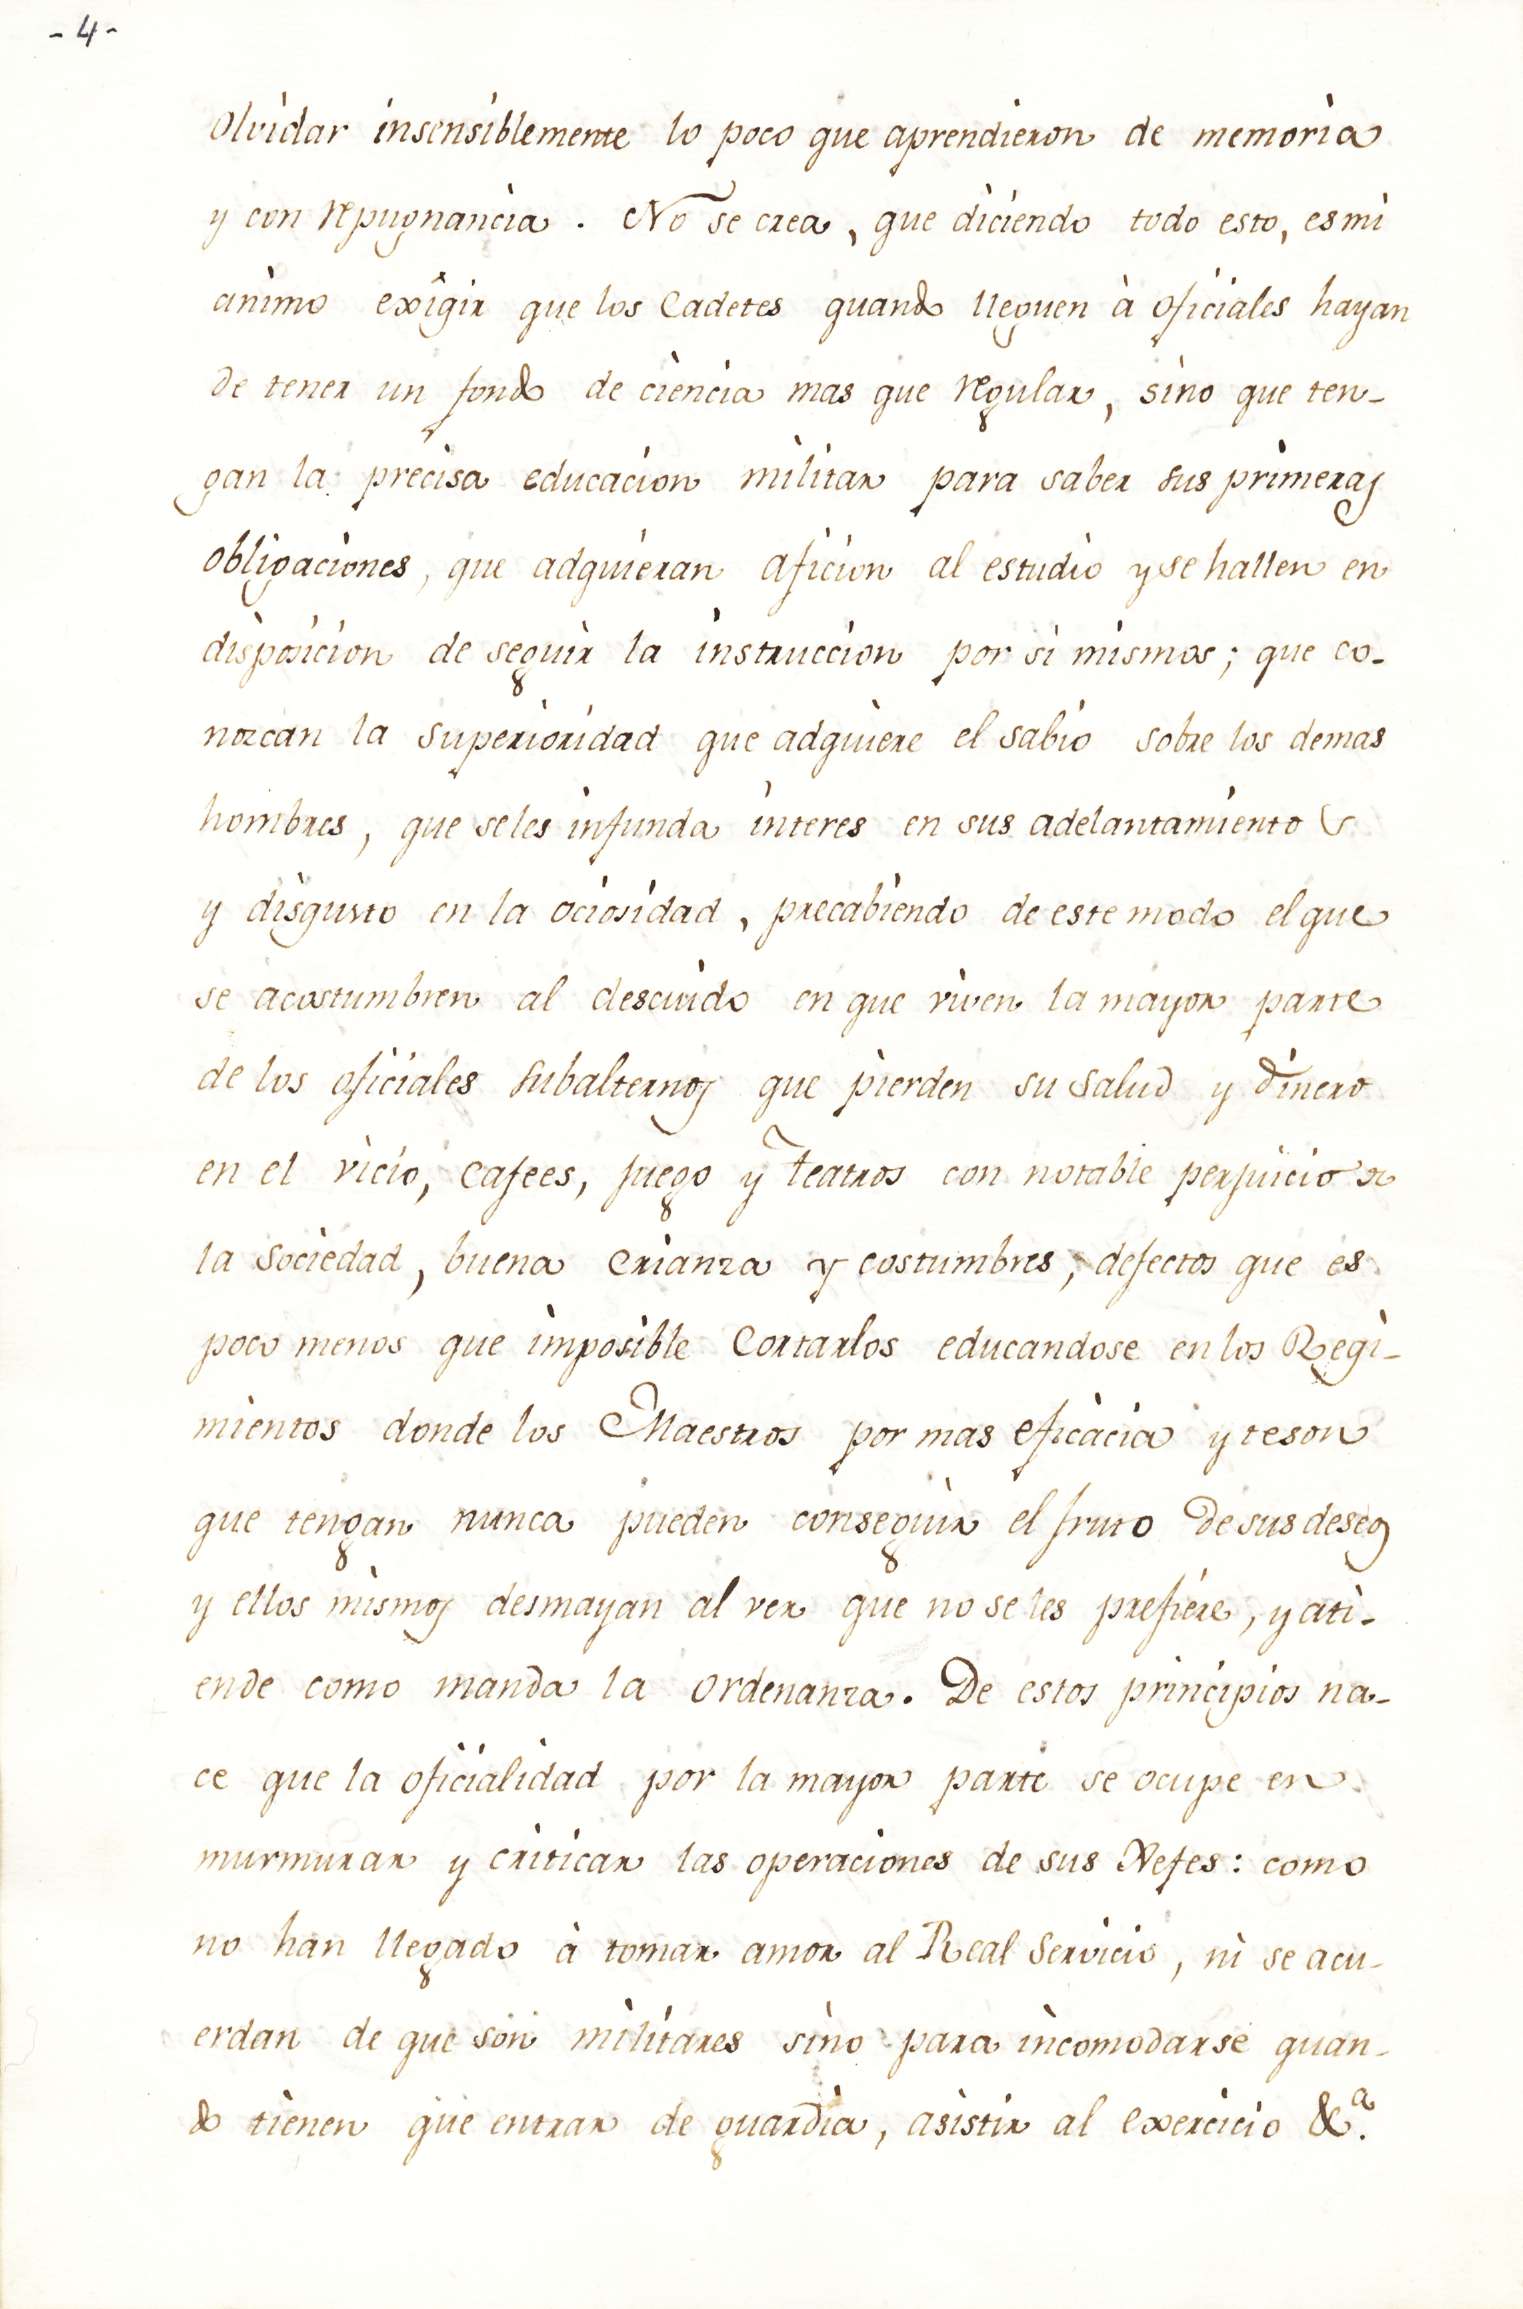 - 4 -
Olvidar insensiblemente lo poco que aprendieron de memoria
y con repugnancia. No se crea, que diciendo todo esto, es mi
animo exîgir que los Cadetes quando lleguen à Oficiales hayan
de tener un fondo de ciencia mas que regular, sino que ten-
gan la precisa educacion militar para saber sus primeras
obligaciones, que adquieran aficion al estudio y se hallen en
disposicion de seguir la instruccion por si mismos; que co-
nozcan la superioridad que adquiere el sabio sobre los demas
hombres, que se les infunda interes en sus adelantamientos
y disgusto en la ociosidad, precabiendo de este modo el que
se acostumbren al descuido en que viven la mayor parte
de los oficiales subalternos que pierden su salud y dinero
en el vicio, Cafees, juego y teatros con notable perjuicio de
la Sociedad, buena Crianza y costumbres, defectos que es
poco menos que imposible Cortarlos educandose en los Regi-
mientos donde los Maestros por mas eficacia y teson
que tengan nunca pueden conseguir el fruto de sus deseos
y ellos mismos desmayan al ver que no se les prefiere, y ati-
ende como manda la ordenanza. De estos principios na-
ce que la oficialidad por la mayor parte se ocupe en
murmurar y criticar las operaciones de sus Xefes: como
no han llegado à tomar amor al Real Servicio, ni se acu-
erdan de que son militares sino para incomodarse quan-
do tienen que entrar de guardia, asistir al exercicio &ª.